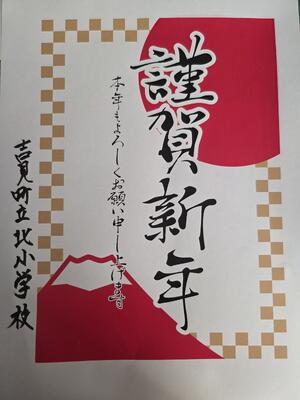 謹賀新年
本年もよろしくお願い申し上げます
吉見町立北小学校